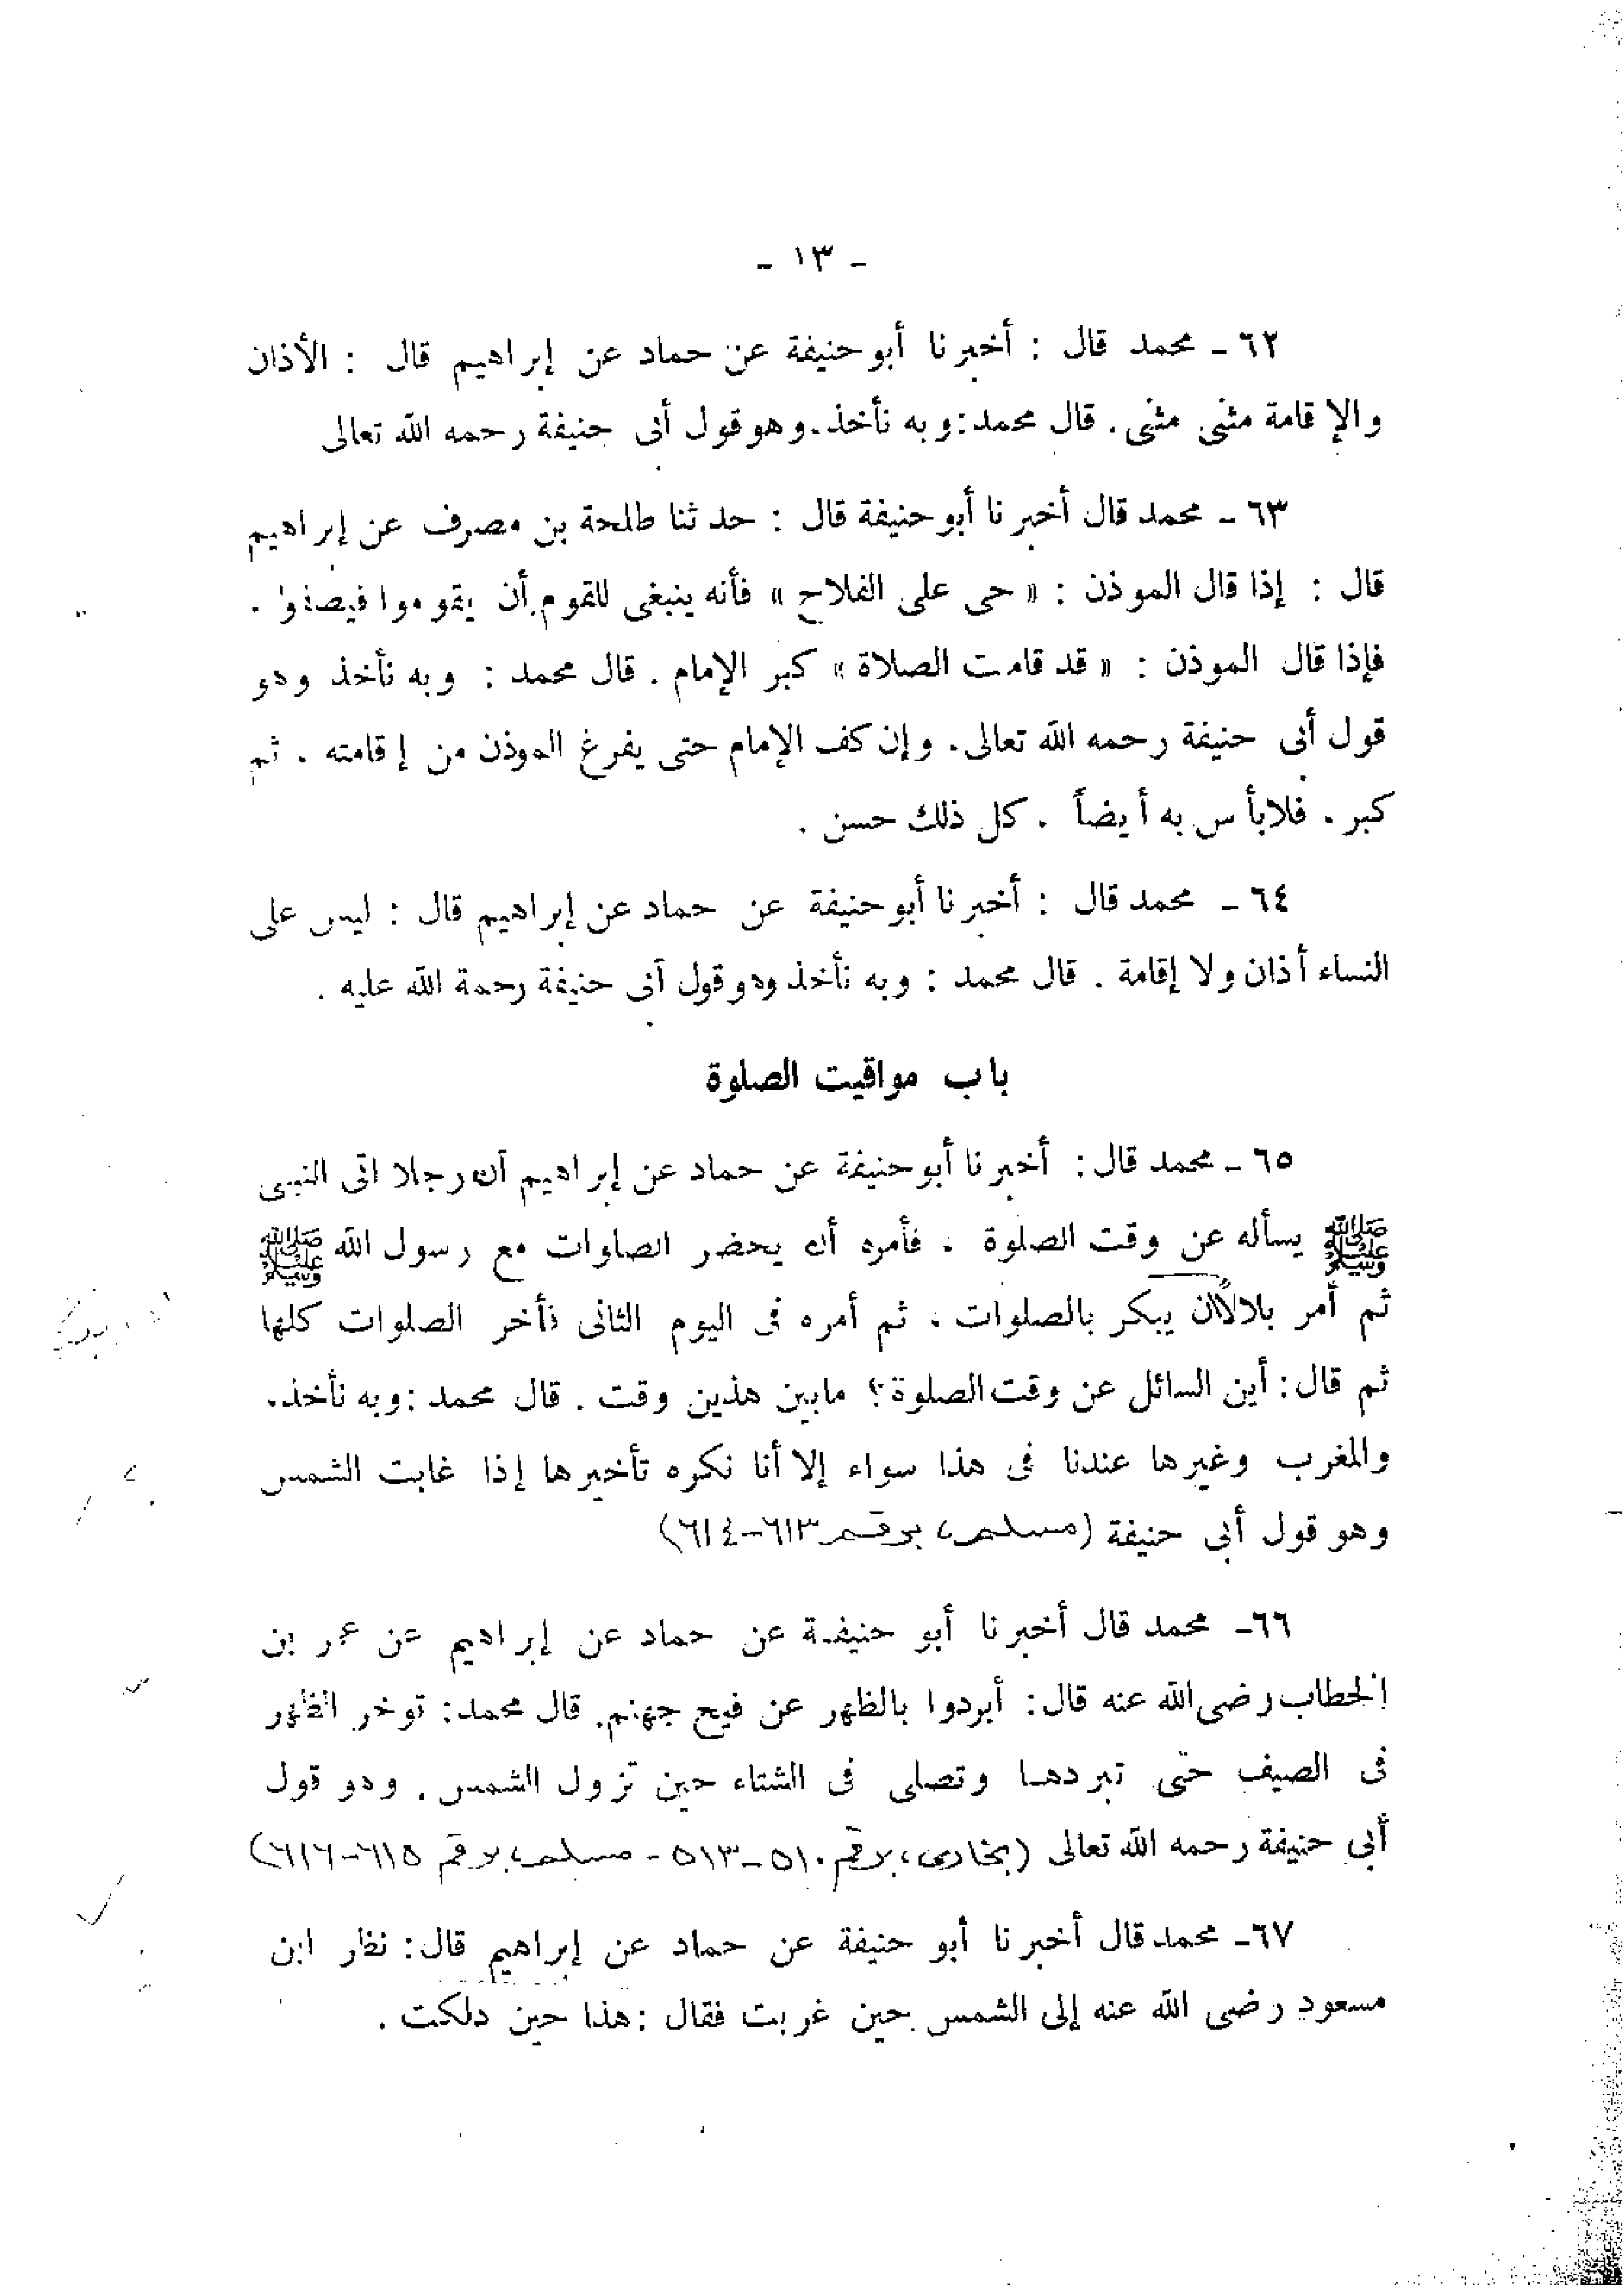 - ١٣ -
٦٢ - محمد قال : أخبرنا أبو حنيفة عن حماد عن إبراهيم قال : الأذان
والإقامة مثنى مثنى . قال محمد : وبه نأخذ . وهو قول أبى حنيفة رحمه الله تعالى
٦٣ - محمد قال أخبرنا أبو حنيفة قال : حدثنا طلحة بن مصرف عن إبراهيم
قال : إذا قال الموذن : « حى على الفلاح » فأنه ينبغى للقوم أن يقوموا فيصفوا .
فإذا قال الموذن : « قد قامت الصلاة » كبر الإمام . قال محمد : وبه نأخذ وهو
قول أبى حنيفة رحمه الله تعالى . وإن كف الإمام حتى يفرغ الموذن من إقامته . ثم
كبر . فلا بأس به أيضاً . كل ذلك حسن .
٦٤ - محمد قال : أخبرنا أبو حنيفة عن حماد عن إبراهيم قال : ليس على
النساء أذان ولا إقامة . قال محمد : وبه نأخذ وهو قول أبى حنيفة رحمة الله عليه .
باب مواقيت الصلوة
٦٥ - محمد قال : أخبرنا أبو حنيفة عن حماد عن إبراهيم أن رجلا اتى النبى
ﷺ يسأله عن وقت الصلوة . فأمره أن يحضر الصلوات مع رسول الله ﷺ
ثم أمر بلالاً أن يبكر بالصلوات ، ثم أمره فى اليوم الثانى فأخر الصلوات كلها
ثم قال : أين السائل عن وقت الصلوة ؟ مابين هذين وقت . قال محمد : وبه نأخذ .
والمغرب وغيرها عندنا فى هذا سواء إلا أنا نكره تأخيرها إذا غابت الشمس
وهو قول أبى حنيفة (مسلم، برقم ٦١٣-٦١٤)
٦٦- محمد قال أخبرنا أبو حنيفة عن حماد عن إبراهيم عن عمر بن
الخطاب رضى الله عنه قال : أبردوا بالظهر عن فيح جهنم . قال محمد : توخر الظهر
فى الصيف حتى تبردها وتصلى فى الشتاء حين تزول الشمس . وهو قول
أبى حنيفة رحمه الله تعالى (بخارى، برقم ٥١٠-٥١٣ - مسلم، برقم ٦١٥-٦١٦)
٦٧- محمد قال أخبرنا أبو حنيفة عن حماد عن إبراهيم قال : نظر ابن
مسعود رضى الله عنه إلى الشمس حين غربت فقال : هذا حين دلكت .